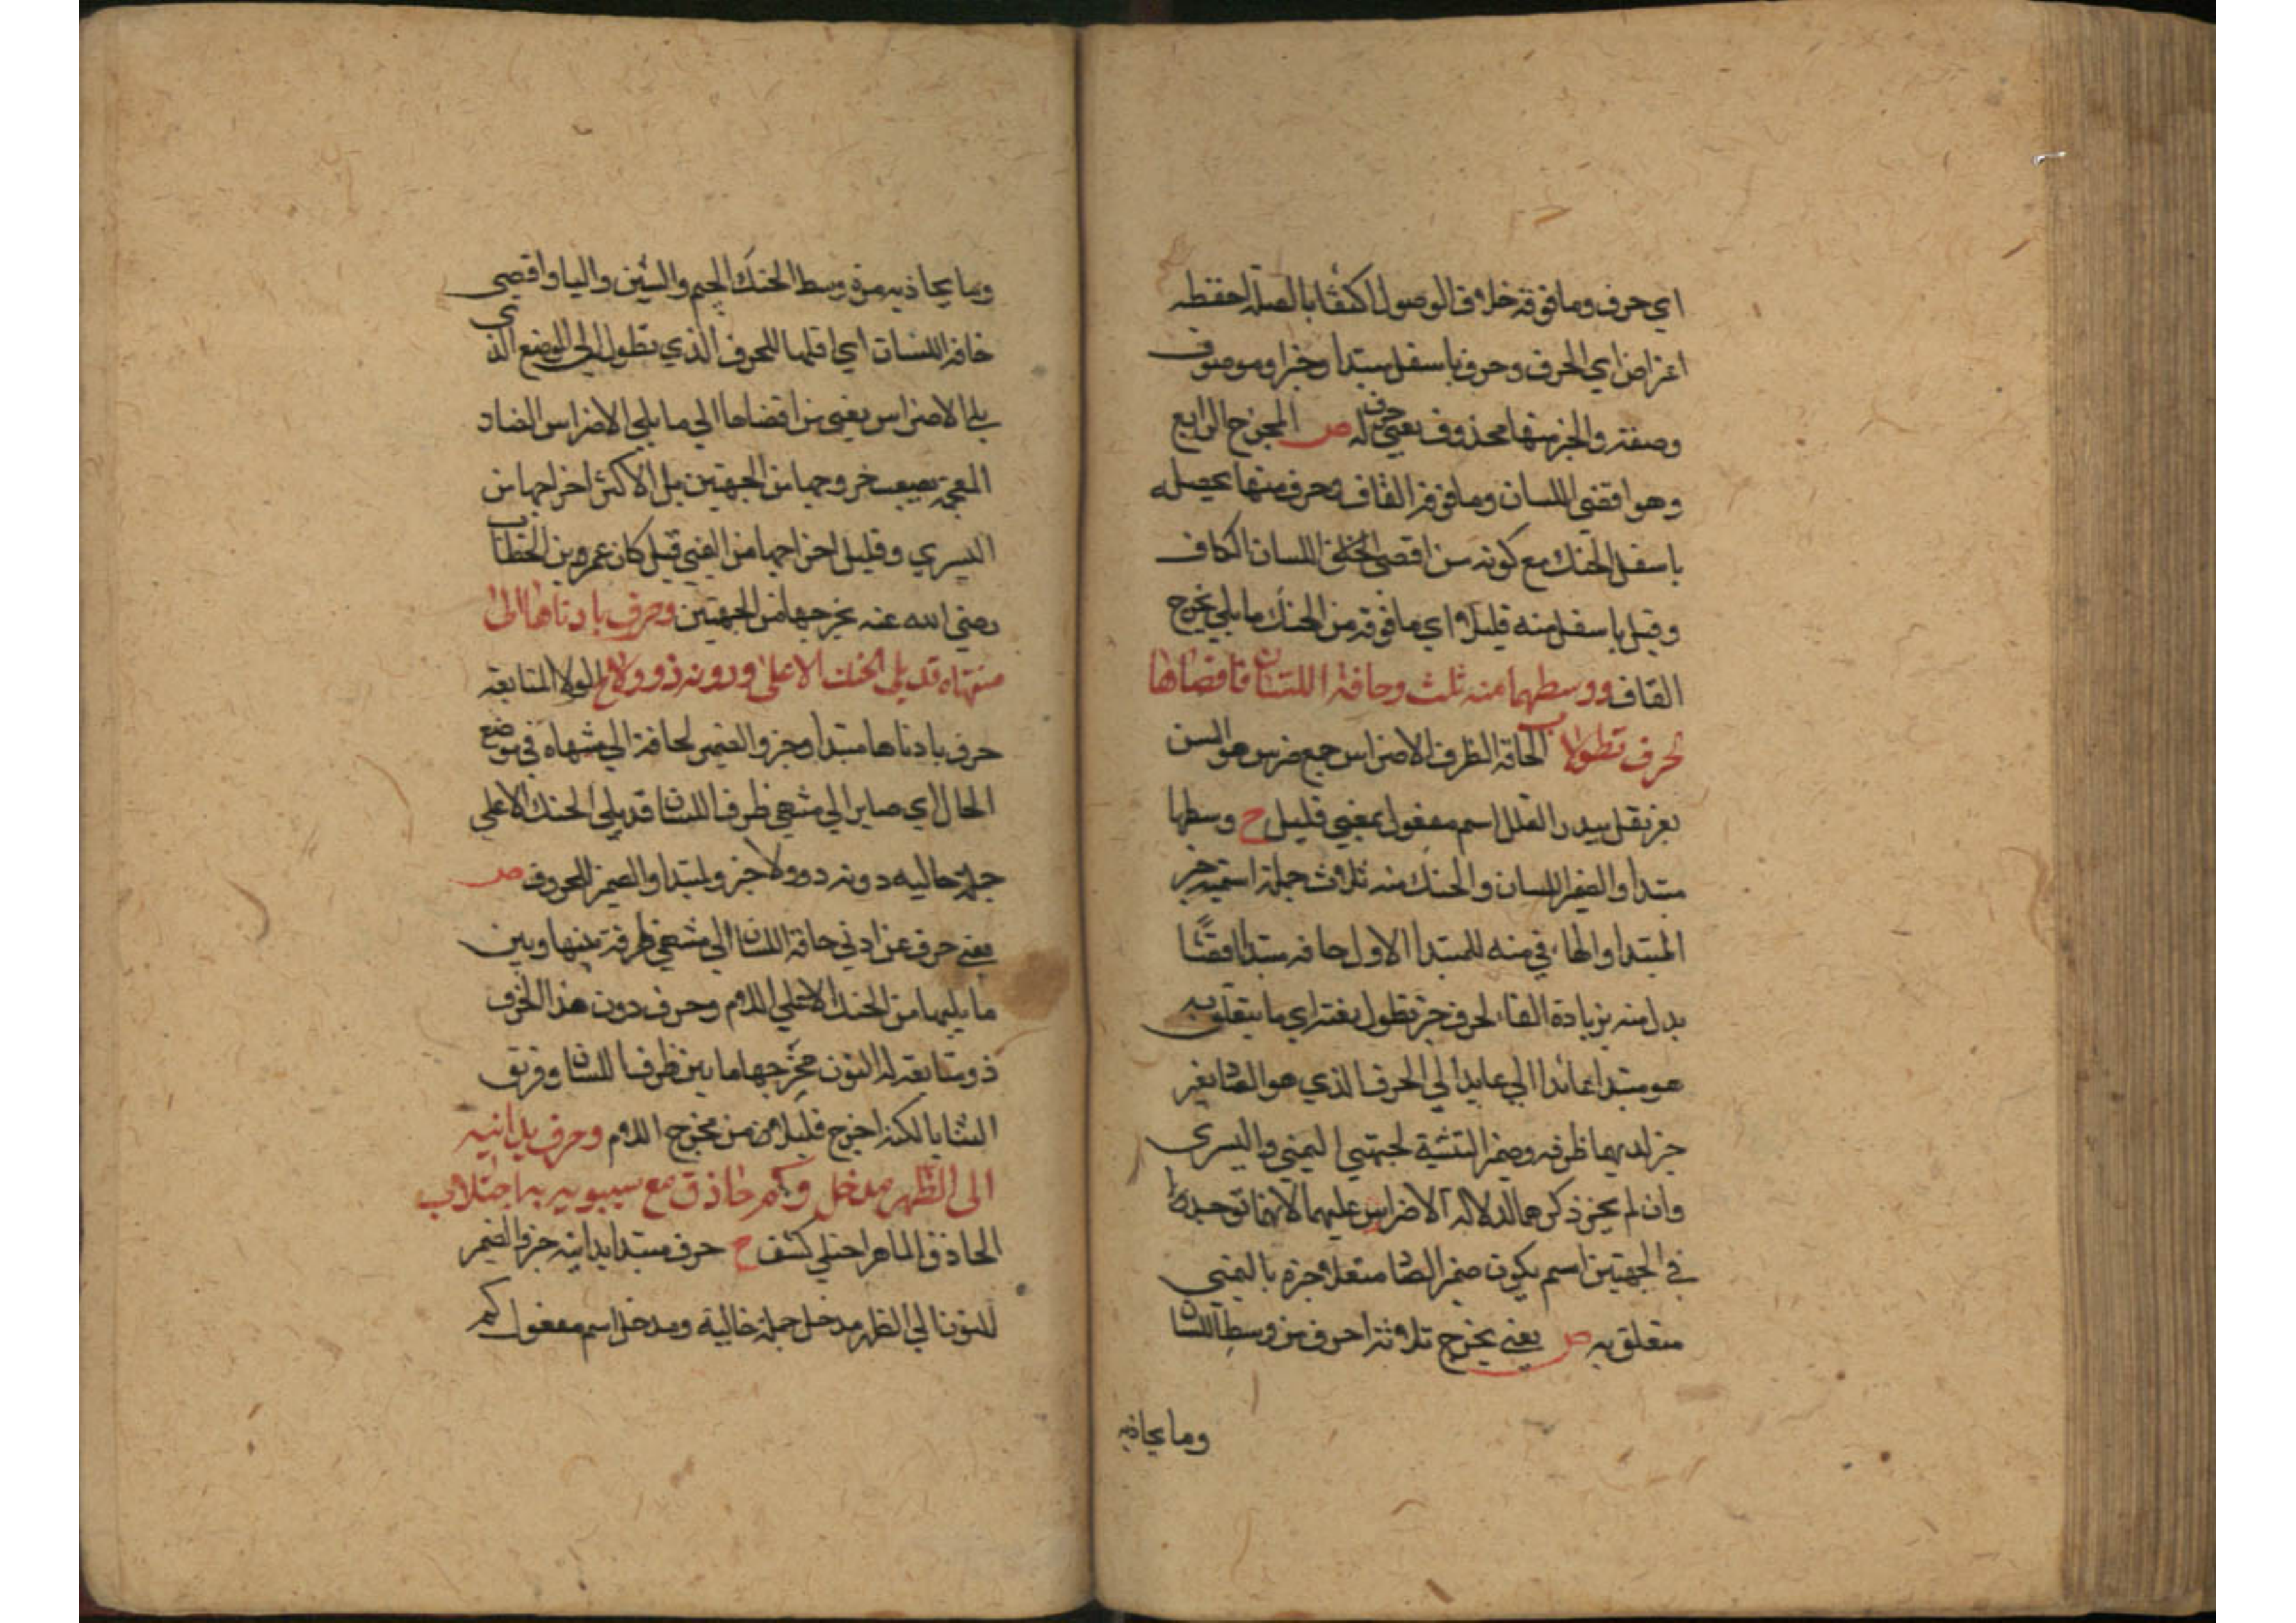 اي حرف وما فوقه خلاف الوصول اكتفا بالصلة احفظه
اي الحرف وحرف باسفل مبتدا وخبر وموصوف
وصفته والخبر منها محذوف يعني حرف له ص المخرج الرابع
وهو اقصى اللسان وما فوقه القاف وحرف منها يحصل
باسفل الحنك مع كونه من اقصى اللسان الكاف
وقيل باسفل منه قليلا اي ما فوقه من الحنك ما يلي مخرج
القاف ووسطهما منه ثلث وحافة اللسان فاقصاها
لحرف تطولا الحافة الطرف الاضراس جمع ضرس هو السن
اسم مفعول بمعني قليل ح وسطها
مبتدا والضمير اللسان والحنك منه ثلاث جملة اسمية خبر
المبتدا والهاء في منه للمبتدا الاول حافة مبتدا
بدل منه بزيادة الفاء لحرف خبر تطول اي ما يتعلق به
هو مبتدا الي عايد الي الحرف الذي هو
ظرفه وضمير التثنية لجهتي اليمني واليسري
وان لم يجز ذكرهما لدلالة الاضراس عليهما لانهما
في الجهتين اسم يكون ضمير باليمني
متعلق به ص يعني يخرج ثلاثة احرف من وسط اللسان
وما يحاذيه
وما يحاذيه من وسط الحنك الجيم والشين واليا واقصي
حافة اللسان اي اقلها للحرف الذي تطول الي الموضع الذي
يلي الاضراس يعني من اقصاها الي ما يلي الاضراس الضاد
المعجمة يصعب خروجها من الجهتين بل الاكثر اخراجها من
اليسري وقليل اخراجها من اليمني قيل كان عمر بن الخطاب
رضي الله عنه يخرجها من الجهتين وحرف بادناها الى
منتهاه قد يلي الحنك الاعلى ودونه ذو ولا ح الولا المتابعة
حرف بادناها مبتدا وخبر والضمير لحافة الي منتهاه في موضع
الحال اي صايرا الي منتهي طرف اللسان قد يلي الحنك الاعلي
جملة حاليه دونه ذو ولا خبر ومبتدا والضمير للحروف ص
يعني حرف من ادني حافة اللسان الي منتهي طرفه بينها وبين
ما يليها من الحنك الاعلي اللام وحرف دون هذا الحرف
ذو متابعة له النون مخرجها ما بين طرف اللسان وفويق
الثنايا لكنه اخرج قليلا من مخرج اللام وحرف يدانيه
الى الظهر مدخل وكم حاذق مع سيبويه به اجتلا
الحاذق الماهر اجتلي كشف ح حرف مبتدا يدانيه خبر والضمير
للنون الي الظهر مدخل جملة حالية ومدخل اسم مفعول كم